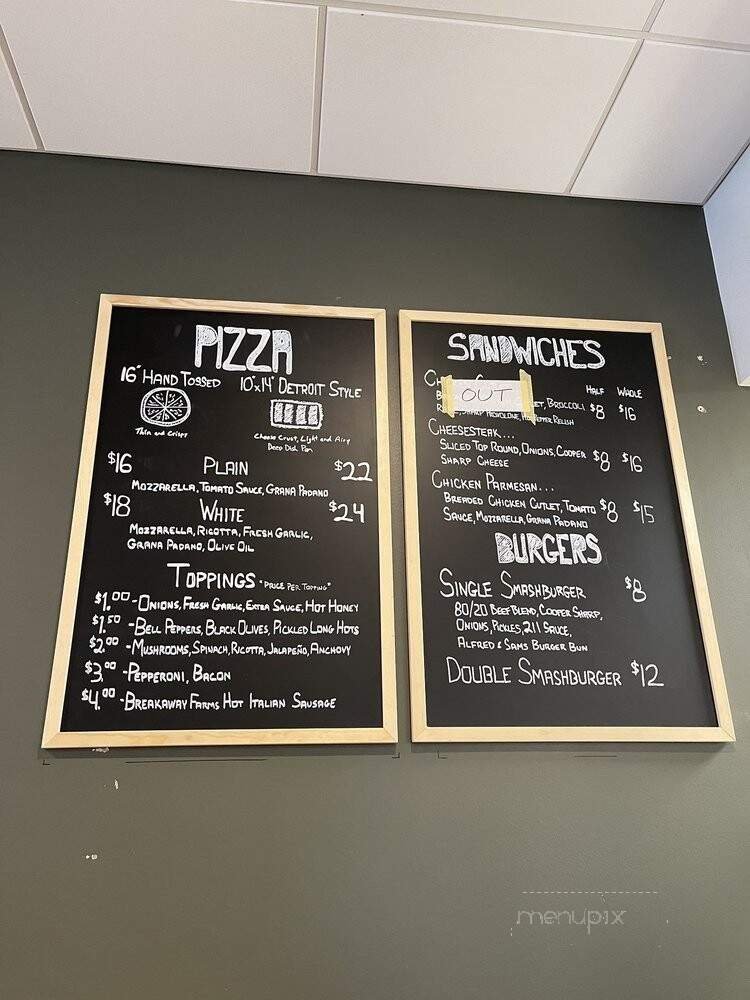 PIZZA
16" HAND TOSSED 10"x14" DETROIT STYLE
Thin and Crispy
Cheese Crust, Light and Airy
Deep Dish Pan
$16 PLAIN $22
MOZZARELLA, TOMATO SAUCE, GRANA PADANO
$18 WHITE $24
MOZZARELLA, RICOTTA, FRESH GARLIC,
GRANA PADANO, OLIVE OIL
TOPPINGS "PRICE PER TOPPING"
$1.00 - ONIONS, FRESH GARLIC, EXTRA SAUCE, HOT HONEY
$1.50 - BELL PEPPERS, BLACK OLIVES, PICKLED LONG HOTS
$2.00 - MUSHROOMS, SPINACH, RICOTTA, JALAPEÑO, ANCHOVY
$3.00 - PEPPERONI, BACON
$4.00 - BREAKAWAY FARMS HOT ITALIAN SAUSAGE
SANDWICHES
HALF WHOLE
OUT
BROCCOLI $8 $16
SHARP PROVOLONE, HOT PEPPER RELISH
CHEESESTEAK...
SLICED TOP ROUND, ONIONS, COOPER $8 $16
SHARP CHEESE
CHICKEN PARMESAN...
BREADED CHICKEN CUTLET, TOMATO $8 $15
SAUCE, MOZZARELLA, GRANA PADANO
BURGERS
SINGLE SMASHBURGER $8
80/20 BEEF BLEND, COOPER SHARP,
ONIONS, PICKLES, 211 SAUCE,
ALFRED & SAMS BURGER BUN
DOUBLE SMASHBURGER $12
menupix